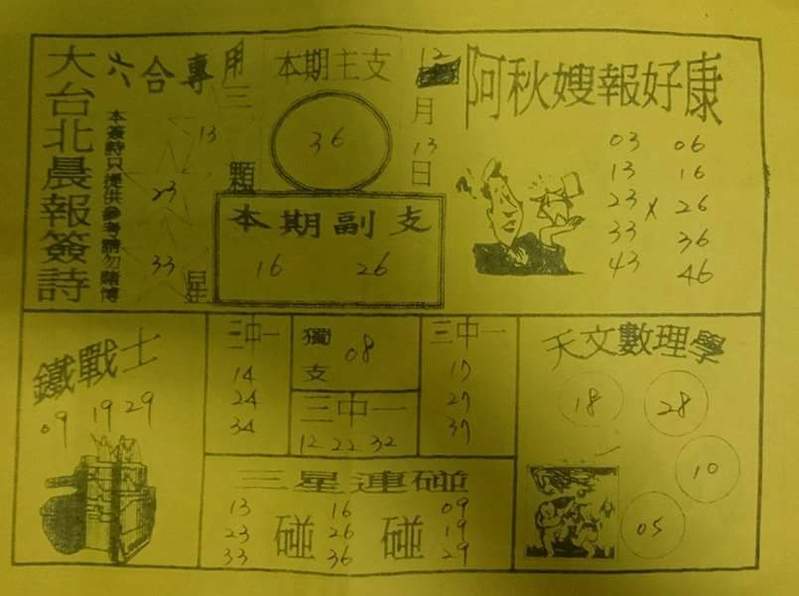 大台北晨報簽詩
六合專用
本簽詩只提供參考請勿賭博
三顆星
13
23
33
本期主支
36
12月13日
本期副支
16 26
阿秋嫂報好康
03 06
13 16
23 x 26
33 36
43 46
鐵戰士
09 19 29
三中一
14
24
34
獨支
08
三中一
12 22 32
三中一
17
27
37
天文數理學
18 28
10
05
三星連碰
13 16 09
23 碰 26 碰 19
33 36 29